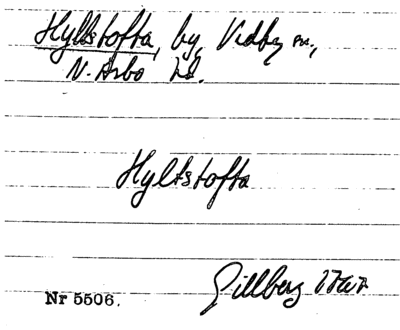 Hyltstofta, by, Vedby sn,
N. Åsbo hd.
Hyltstofta
Gillberg 1767
Nr 5506.